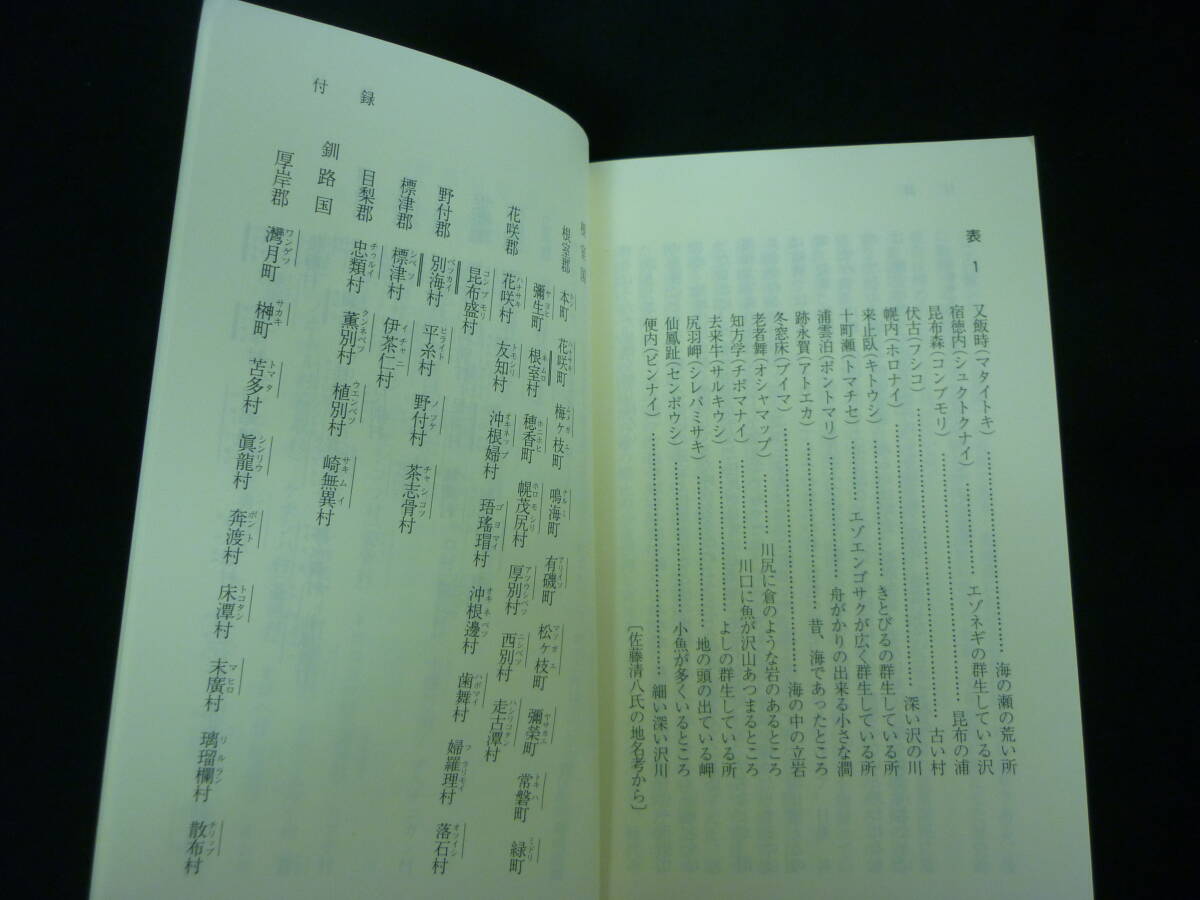 表1
又飯時(マタイトキ)……海の瀬の荒い所
宿徳内(シュクトクナイ)……エゾネギの群生している沢
昆布森(コンブモリ)……昆布の浦
伏古(フシコ)……古い村
幌内(ホロナイ)……深い沢の川
来止臥(キトウシ)……きとびるの群生している所
十町瀬(トマチセ)……エゾエンゴサクが広く群生している所
浦雲泊(ポントマリ)……舟がかりの出来る小さな澗
跡永賀(アトエカ)……昔、海であったところ
冬窓床(ブイマ)……海の中の立岩
老者舞(オシャマップ)……川尻に倉のような岩のあるところ
知方学(チポマナイ)……川口に魚が沢山あつまるところ
去来牛(サルキウシ)……よしの群生している所
尻羽岬(シレパミサキ)……地の頭の出ている岬
仙鳳趾(センポウシ)……小魚が多くいるところ
便内(ビンナイ)……細い深い沢川
〔佐藤清八氏の地名考から〕
付録
根室国
根室郡 本町 花咲町 梅ヶ枝町 鳴海町 有磯町 松ヶ枝町 彌榮町 常磐町 緑町
彌生町 根室村 穂香町 幌茂尻村 厚別村 西別村 走古潭村
花咲郡 花咲村 友知村 沖根婦村 珸瑤瑁村 沖根邊村 歯舞村 婦羅理村 落石村
昆布盛村
野付郡 別海村 平糸村 野付村 茶志骨村
標津郡 標津村 伊茶仁村
目梨郡 忠類村 薫別村 植別村 崎無異村
釧路国
厚岸郡 灣月町 榊町 苫多村 眞龍村 奔渡村 床潭村 末廣村 璃瑠欄村 散布村